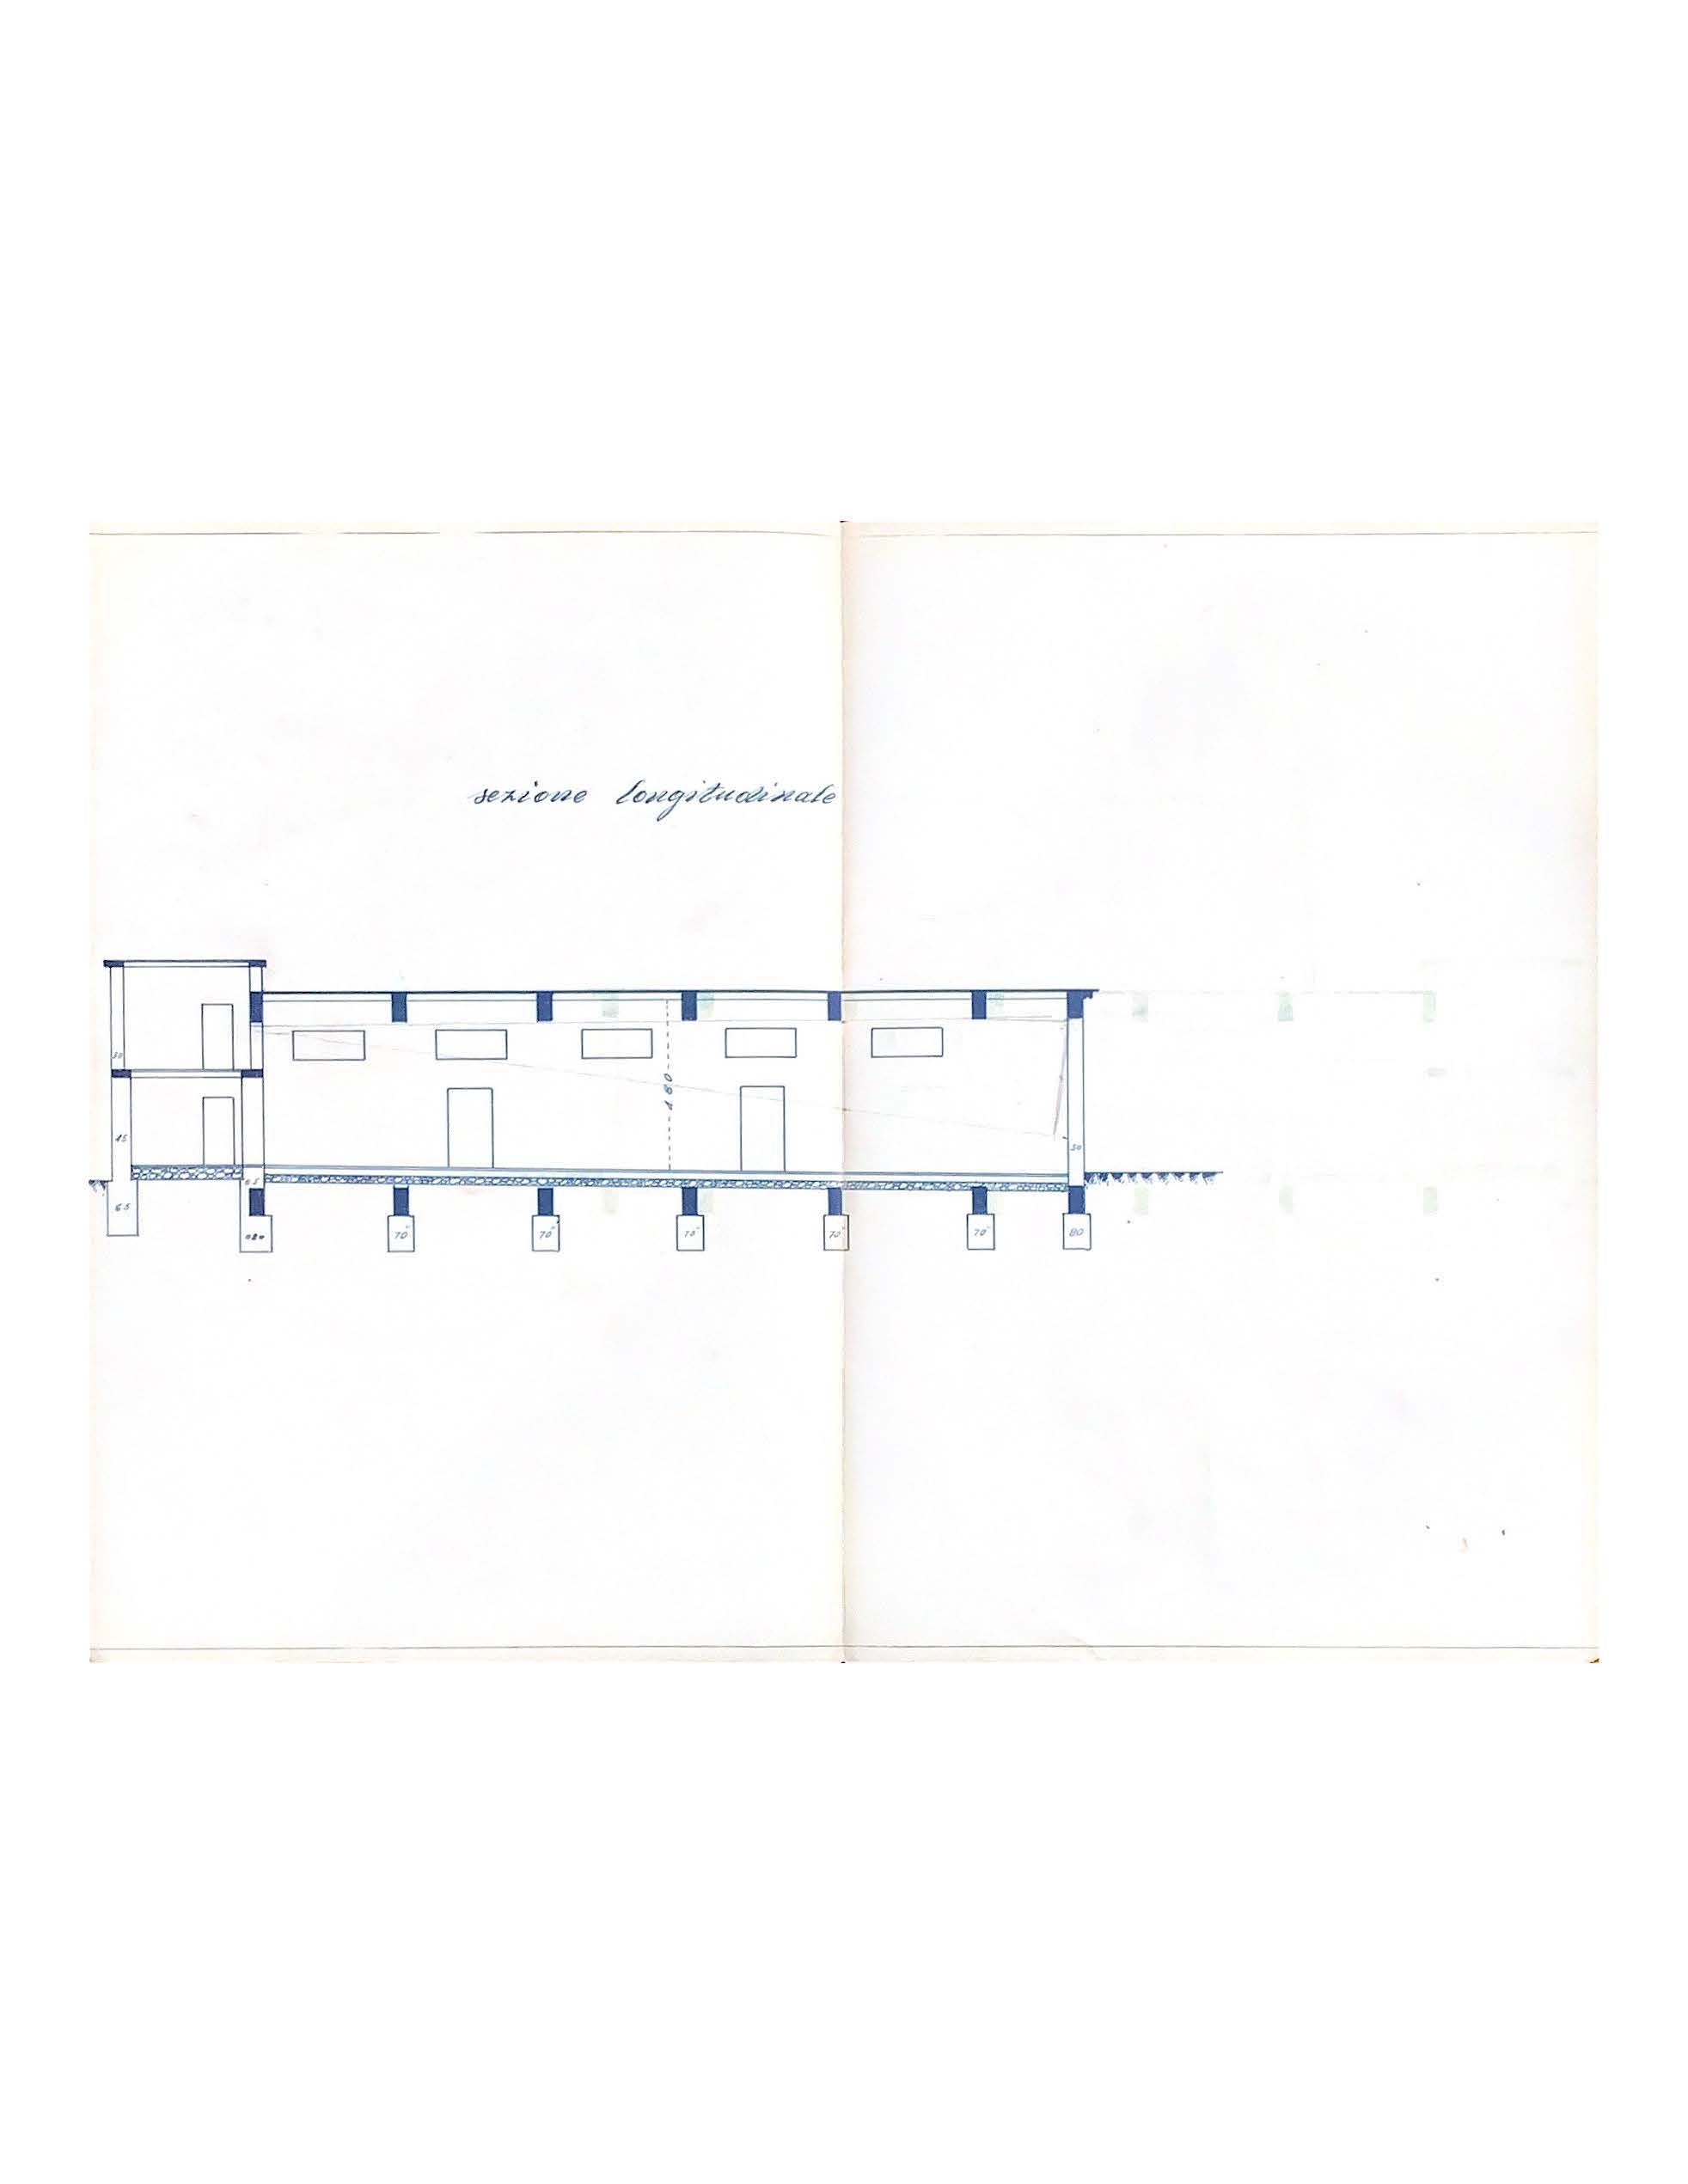 sezione longitudinale
480
30
45
50
65
65
080
70
70
70
70
70
80